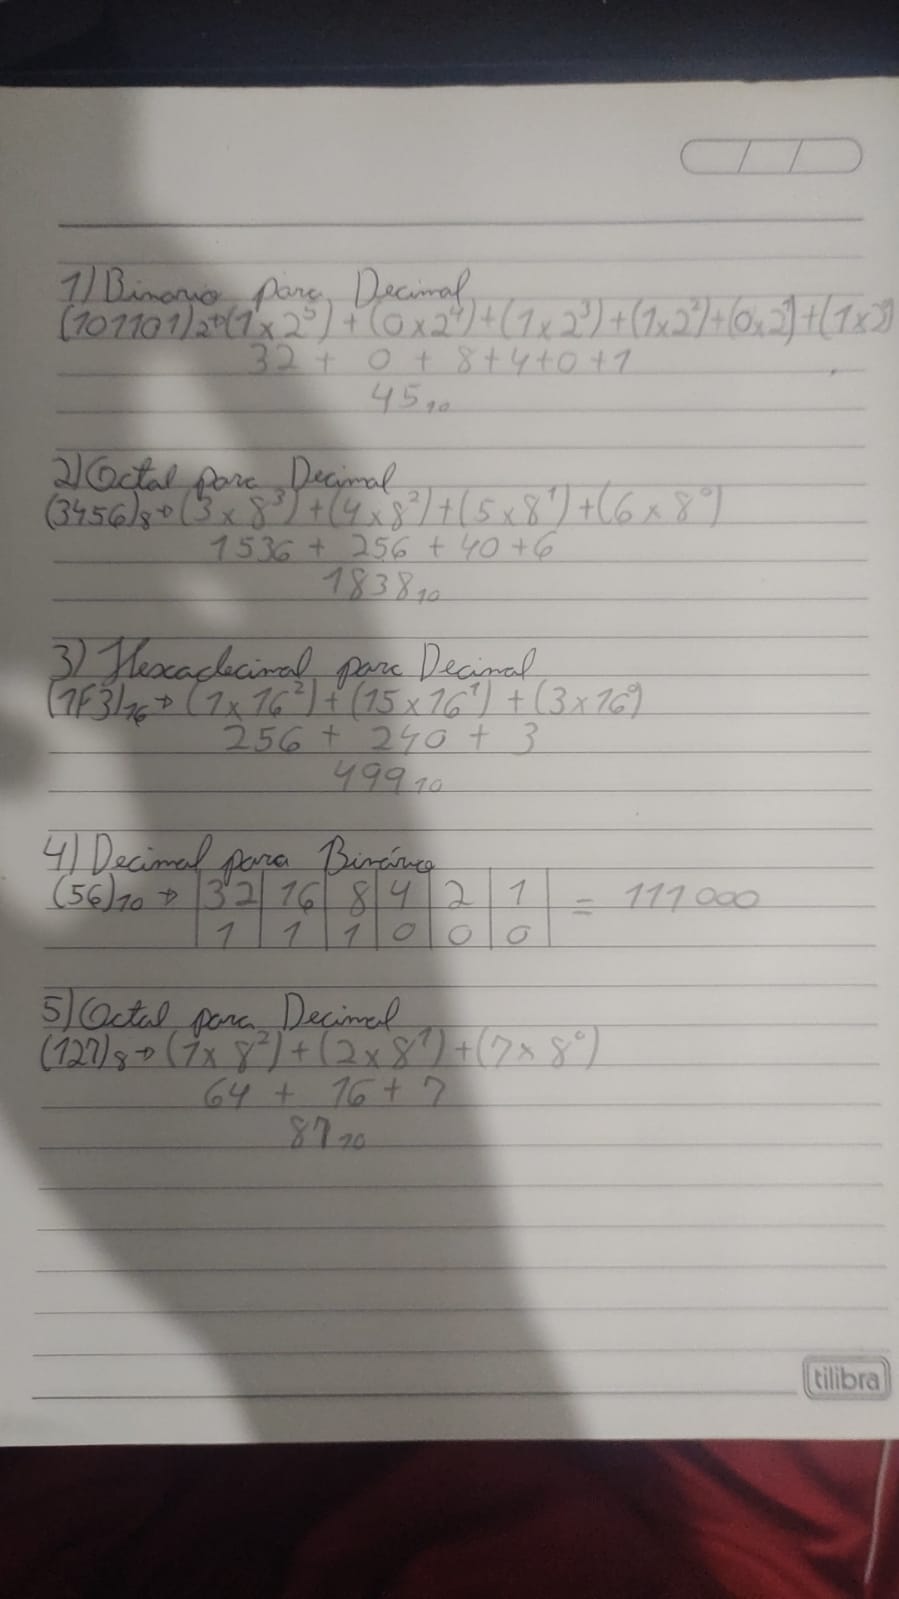 1) Binario para Decimal
(101101)₂→(1x2⁵)+(0x2⁴)+(1x2³)+(1x2²)+(0x2¹)+(1x2⁰)
32 + 0 + 8+4+0+1
45₁₀
2) Octal para Decimal
(3456)₈→(3x8³)+(4x8²)+(5x8¹)+(6x8⁰)
1536 + 256 + 40 +6
1838₁₀
3) Hexadecimal para Decimal
(1F3)₁₆→(1x16²)+(15x16¹)+(3x16⁰)
256 + 240 + 3
499₁₀
4) Decimal para Binário
(56)₁₀→ |32|16|8|4|2|1| = 111000
|1|1|1|0|0|0|
5) Octal para Decimal
(127)₈→(1x8²)+(2x8¹)+(7x8⁰)
64 + 16 + 7
87₁₀
tilibra